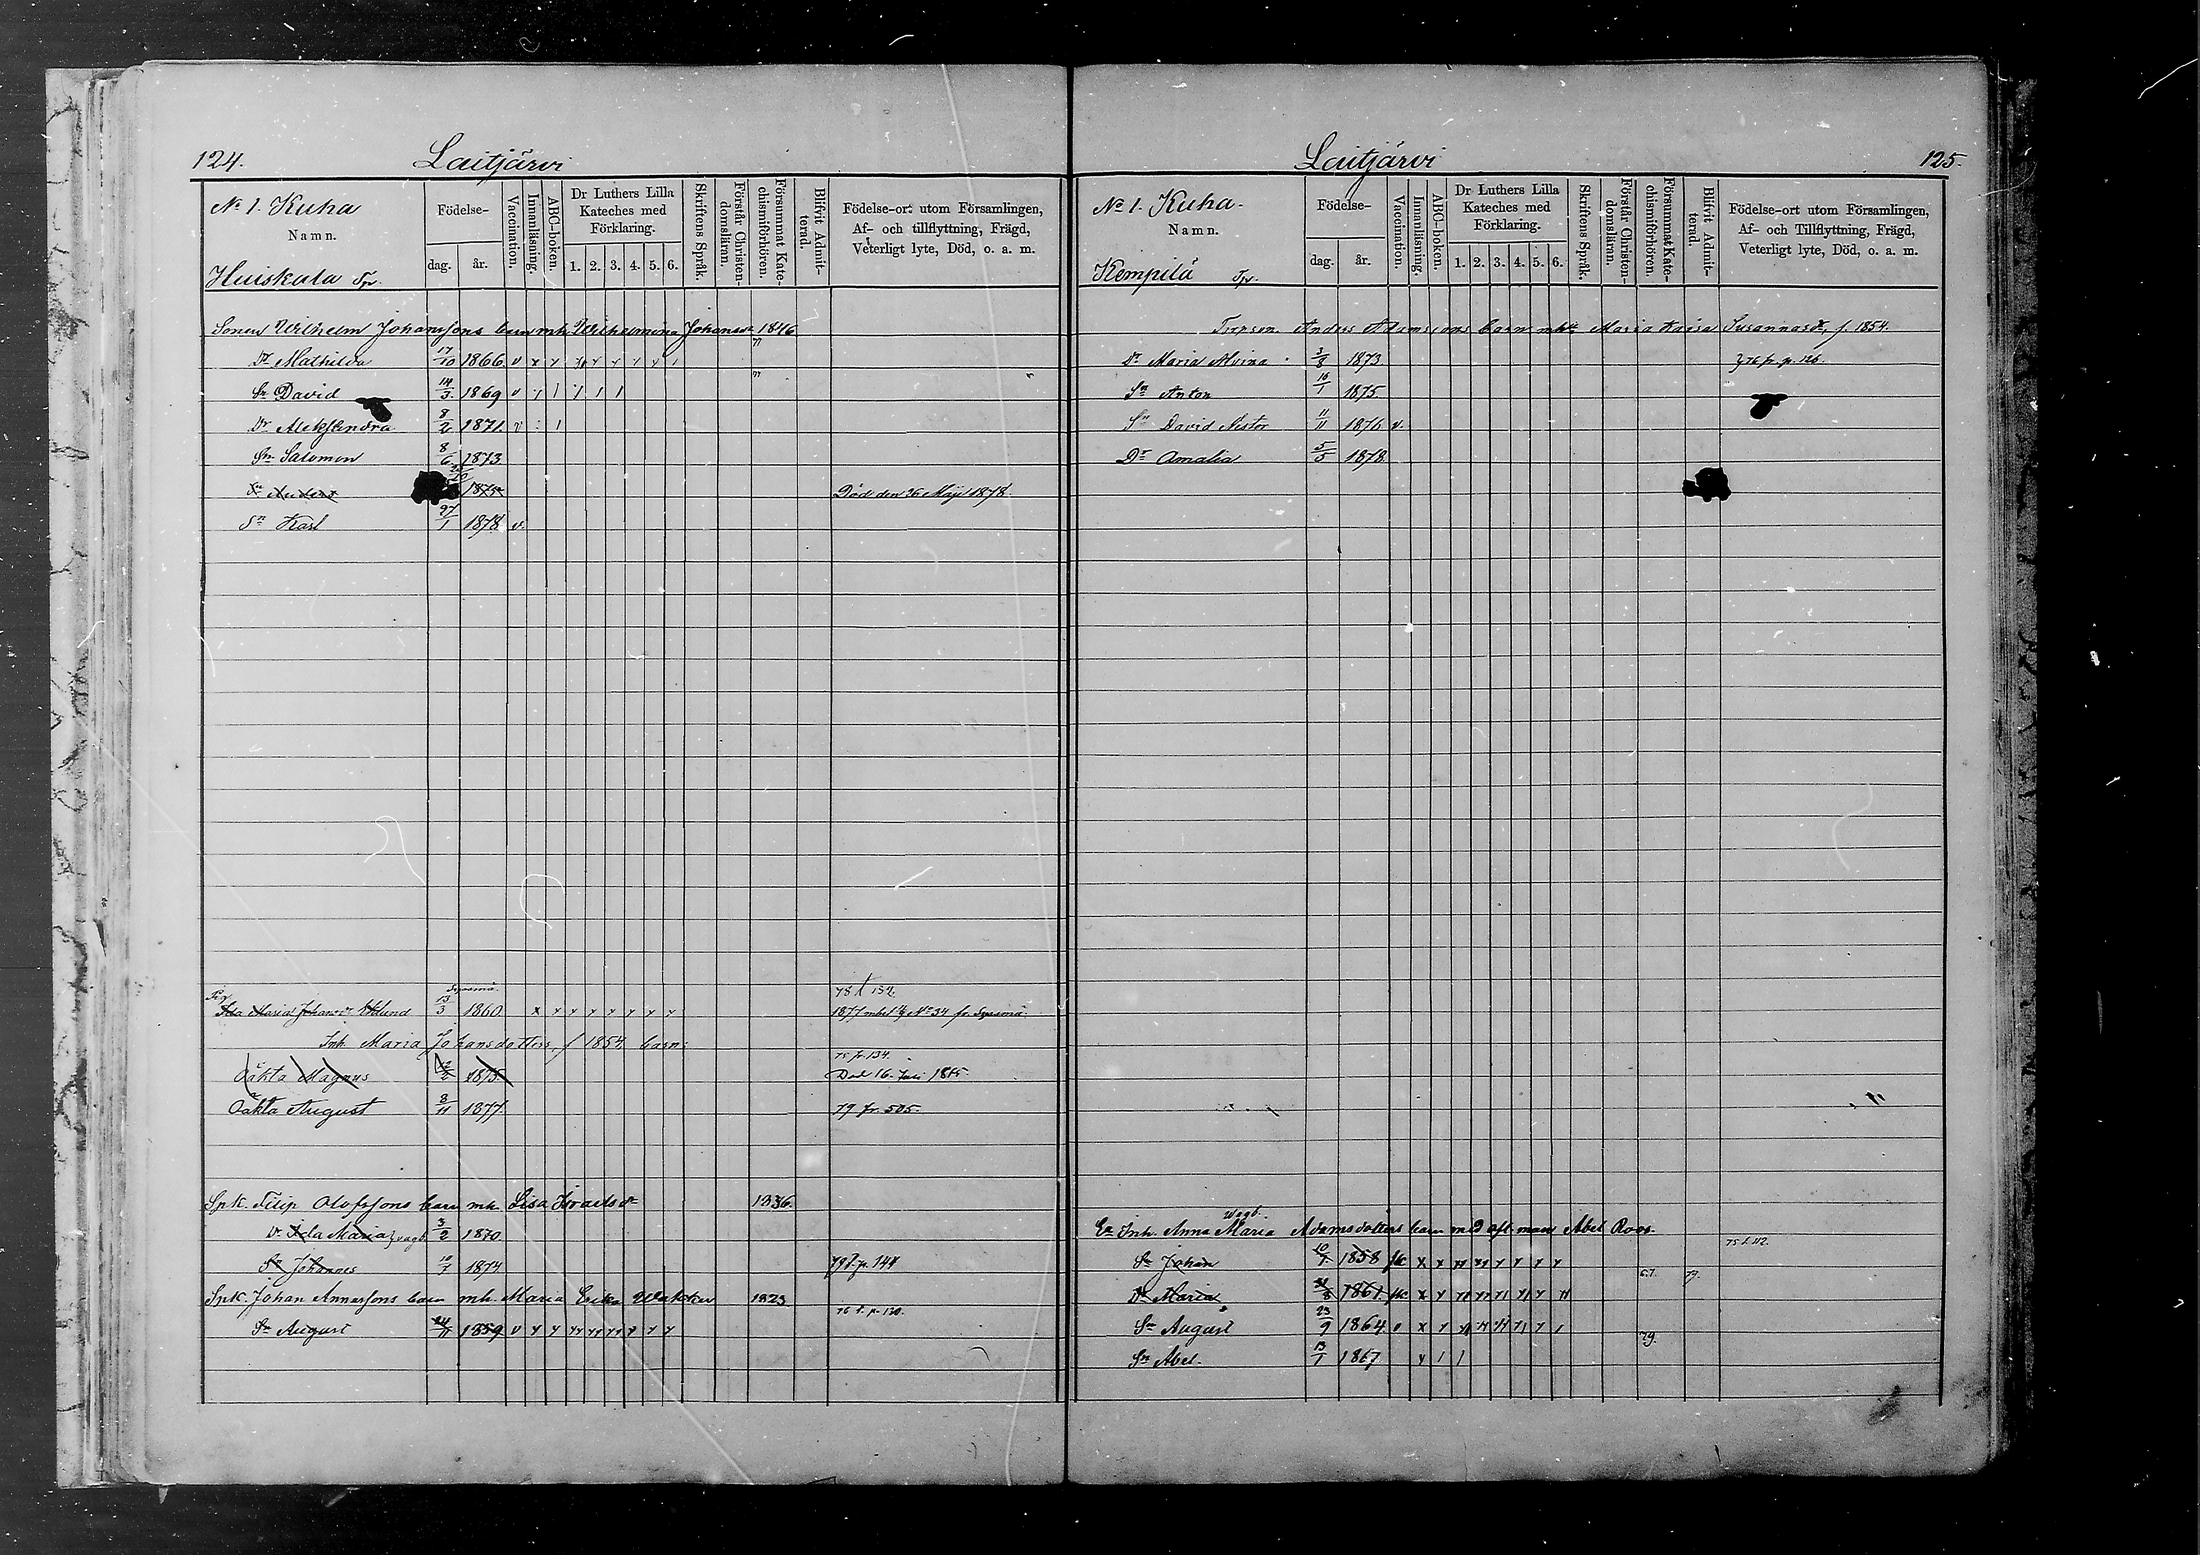 124. Laitjärvi
No 1. Kuha
Namn.
Huiskala Tp.
Födelse-
dag. år.
Vaccination.
Innanläsning.
ABC-boken.
Dr Luthers Lilla
Kateches med
Förklaring.
1. 2. 3. 4. 5. 6.
Skriftens Språk.
Förstår Christen-
domsläran.
Försummat Kate-
chismiförhören.
Blifvit Admit-
terad.
Födelse-ort utom Församlingen,
Af- och tillflyttning, Frägd,
Veterligt lyte, Död, o. a. m.
Sonen Wilhelm Johanssons barn mh. Wilhelmina Johansdr 1846
77
Dr Mathilda 17/10 1866 v x y y y y y
77
Sn David 14/3 1869 v y 1 1 1 1
Dr Aleksandra 8/2 1871 v 1
Sn Salomon 8/6 1873
Sn Anders 1875 Död den 26 Maji 1878.
Sn Karl 27/1 1878 v.
Sysmä. 78 t 132
Pig. Ida Maria Johansdr 13/3 1860 x y y y y y y y 1877 mbet No 34 fr. Sysmä
Inh. Maria Johansdotters, f 1854, barn:
75 fr. 134.
Oäkta Magnus 12/2 1875 Död 16 Juni 1875.
Oäkta August 3/11 1877 79 fr. 505.
Spk. Filip Olofssons barn mh. Lisa Israelsdr 1836.
Dr Ida Maria } vagb. 3/2 1870
Sn Johannes 10/7 1874 79 f. p. 144
Spk. Johan Annassons barn mh. Maria Erika 1823
76 t. p. 130.
Sn August 24/11 1859 v y y yy yy yy y y y
Laitjärvi 125.
No 1. Kuha.
Namn.
Kempilä Tp.
Födelse-
dag. år.
Vaccination.
Innanläsning.
ABC-boken.
Dr Luthers Lilla
Kateches med
Förklaring.
1. 2. 3. 4. 5. 6.
Skriftens Språk.
Förstår Christen-
domsläran.
Försummat Kate-
chismiförhören.
Blifvit Admit-
terad.
Födelse-ort utom Församlingen,
Af- och Tillflyttning, Frägd,
Veterligt lyte, Död, o. a. m.
Anders Adamssons barn mh Maria Kaisa Susannasdr, f. 1854.
Dr Maria Alvina 3/8 1873 } 76 fr. p. 126.
Sn Anton 16/1 1875
Sn David Nestor 11/11 1876 v.
Dr Amalia 5/5 1878
Wagb.
Ea Inh. Anna Maria Adamsdotters barn med afl. man Abel Roos.
75 t. 112.
Sn Johan 10/7 1858 x x yy yy y y y y
67. 77.
Dr Maria 1861 x y yy yy yy y y
Sn August 23/9 1864 v x y y 1
79.
Sn Abel. 13/1 1867 y 1 1